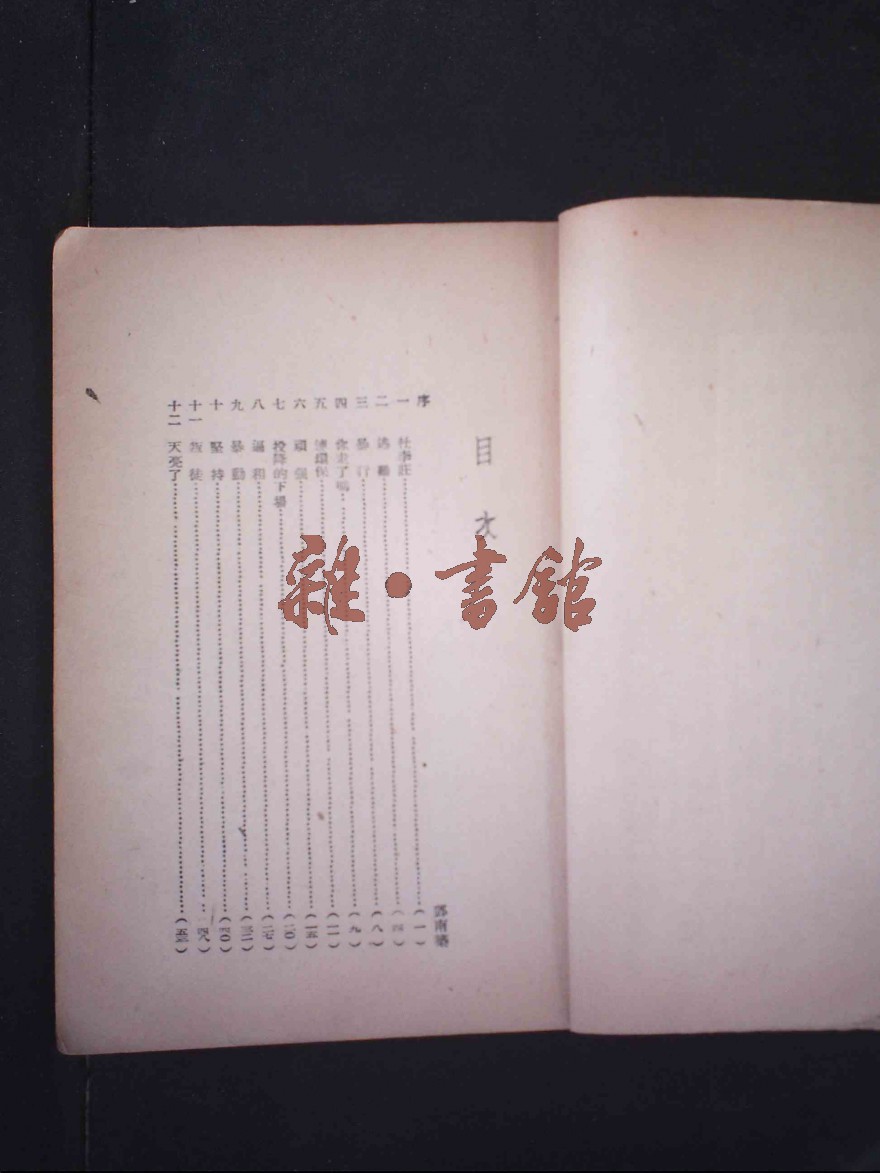 目次
序
一 杜李莊 (一)
二 逃難 (四)
三 暴行 (八)
四 你走了嗎 (九)
五 環保 (一一)
六 頑強 (一五)
七 投降的下場 (二〇)
八 逼租 (二七)
九 暴動 (三二)
十 堅持 (四〇)
十一 叛徒 (四八)
十二 天亮了 (五三)
雜·書館